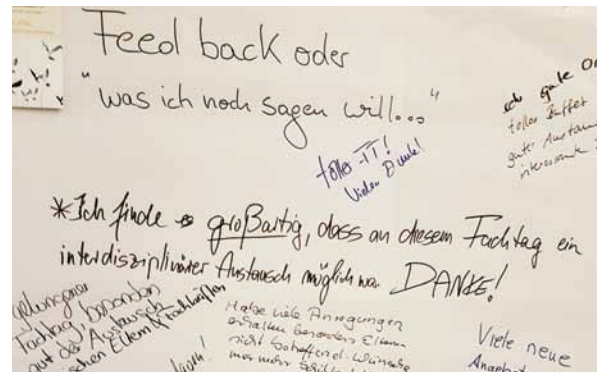 Feed back oder
"was ich noch sagen will..."
toller TT!
Vielen Dank!
gute
tolles Buffet
guter Austausch
interessante
*Ich finde es großartig, dass an diesem Fachtag ein
interdisziplinärer Austausch möglich war DANKE!
gelungener
Fachtag, besonders
gut der Austausch
zwischen Eltern & Fachkräften
Habe viele Anregungen
erhalten besonders Eltern
nicht betreffend. Wünsche
mir mehr
Viele neue